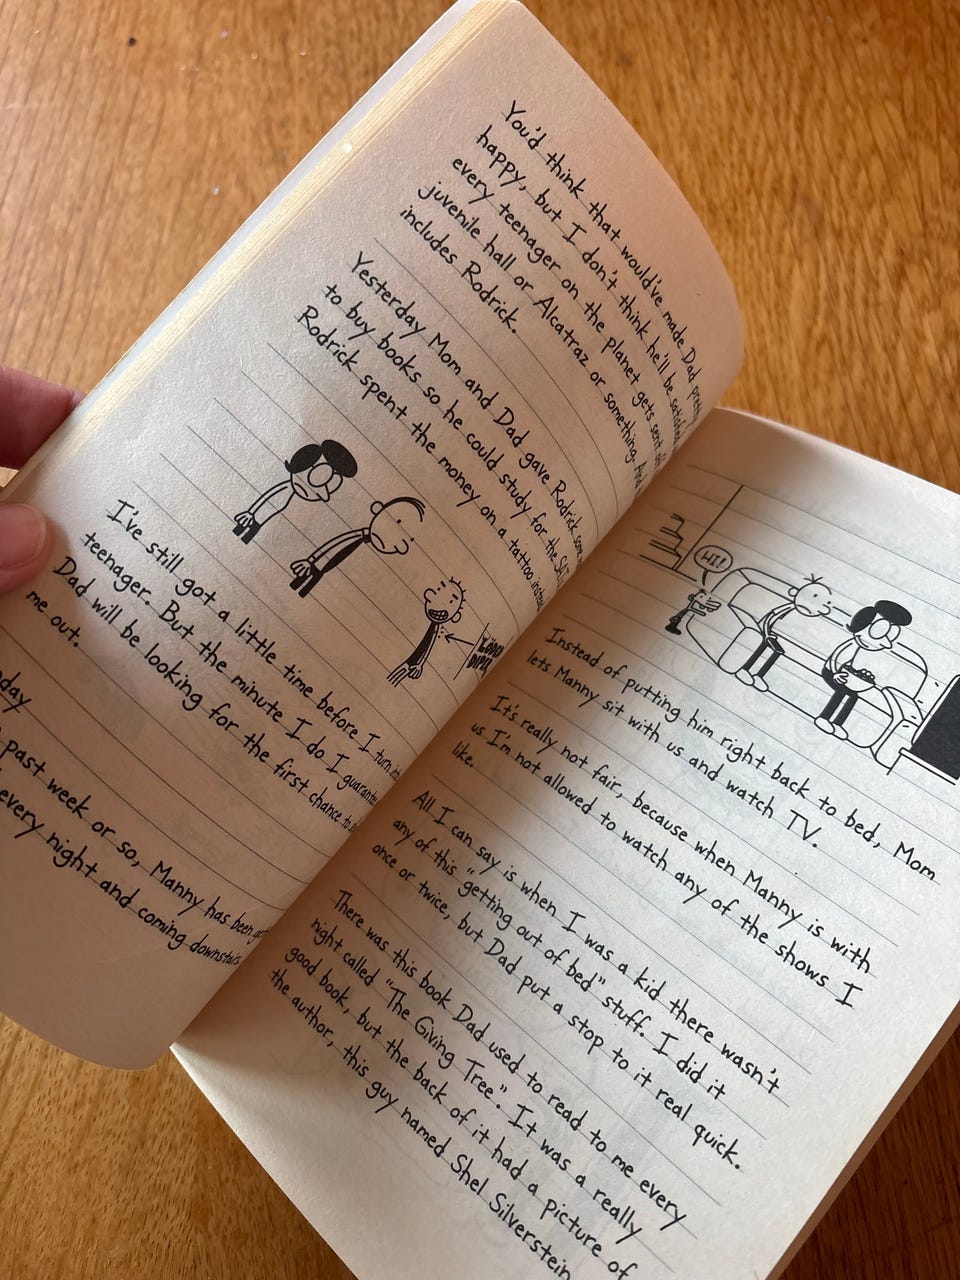 You'd think that would've made Dad pretty
happy, but I don't think he'll be satisfied
every teenager on the planet gets sent
juvenile hall or Alcatraz or something. And
includes Rodrick.
Yesterday Mom and Dad gave Rodrick some
to buy books so he could study for the SAT
Rodrick spent the money on a tattoo instead
I've still got a little time before I turn into
teenager. But the minute I do I guarantee
Dad will be looking for the first chance to
me out.
day
past week or so, Manny has been
every night and coming downstairs
HI!
Instead of putting him right back to bed, Mom
lets Manny sit with us and watch TV.
It's really not fair, because when Manny is with
us I'm not allowed to watch any of the shows I
like.
All I can say is when I was a kid there wasn't
any of this "getting out of bed" stuff. I did it
once or twice, but Dad put a stop to it real quick.
There was this book Dad used to read to me every
night called "The Giving Tree." It was a really
good book, but the back of it had a picture of
the author, this guy named Shel Silverstein